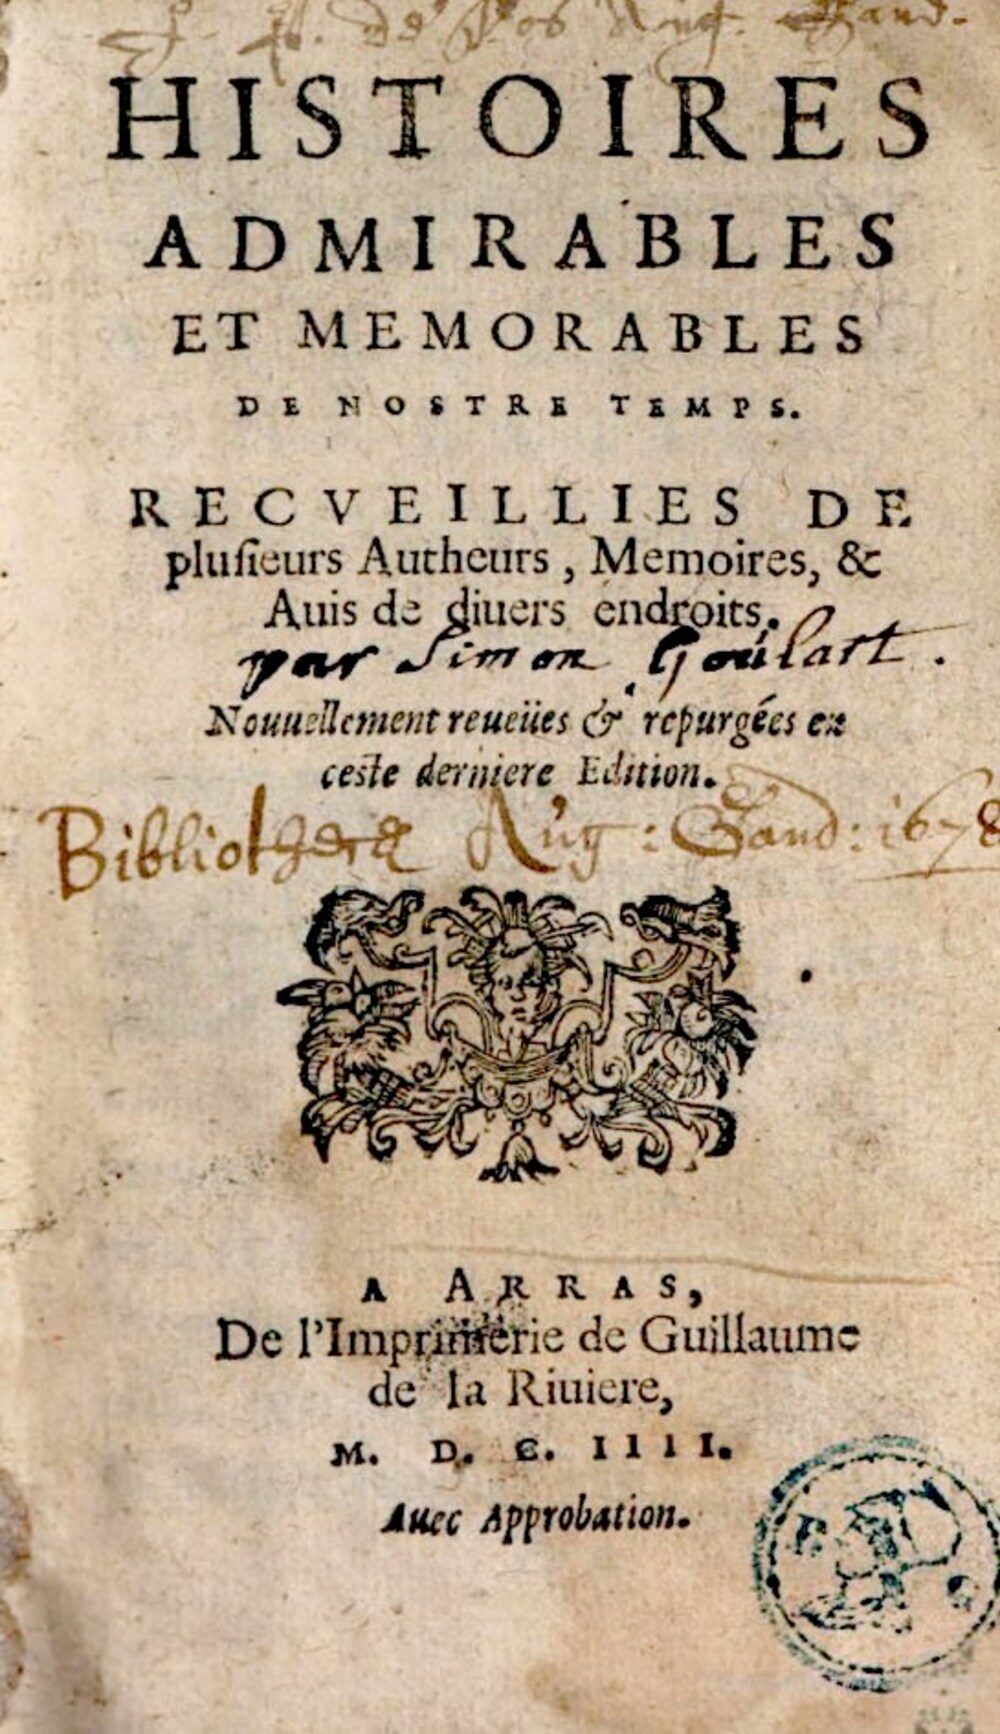 de Vos Aug. Gand.
HISTOIRES
ADMIRABLES
ET MEMORABLES
DE NOSTRE TEMPS.
RECVEILLIES DE
plusieurs Autheurs, Memoires, &
Auis de diuers endroits.
par Simon Goulart.
Nouuellement reueües & repurgées en
ceste derniere Edition.
Bibliothecæ Aug: Gand: 1678
A ARRAS,
De l'Imprimerie de Guillaume
de la Riuiere,
M. D. C. IIII.
Auec Approbation.